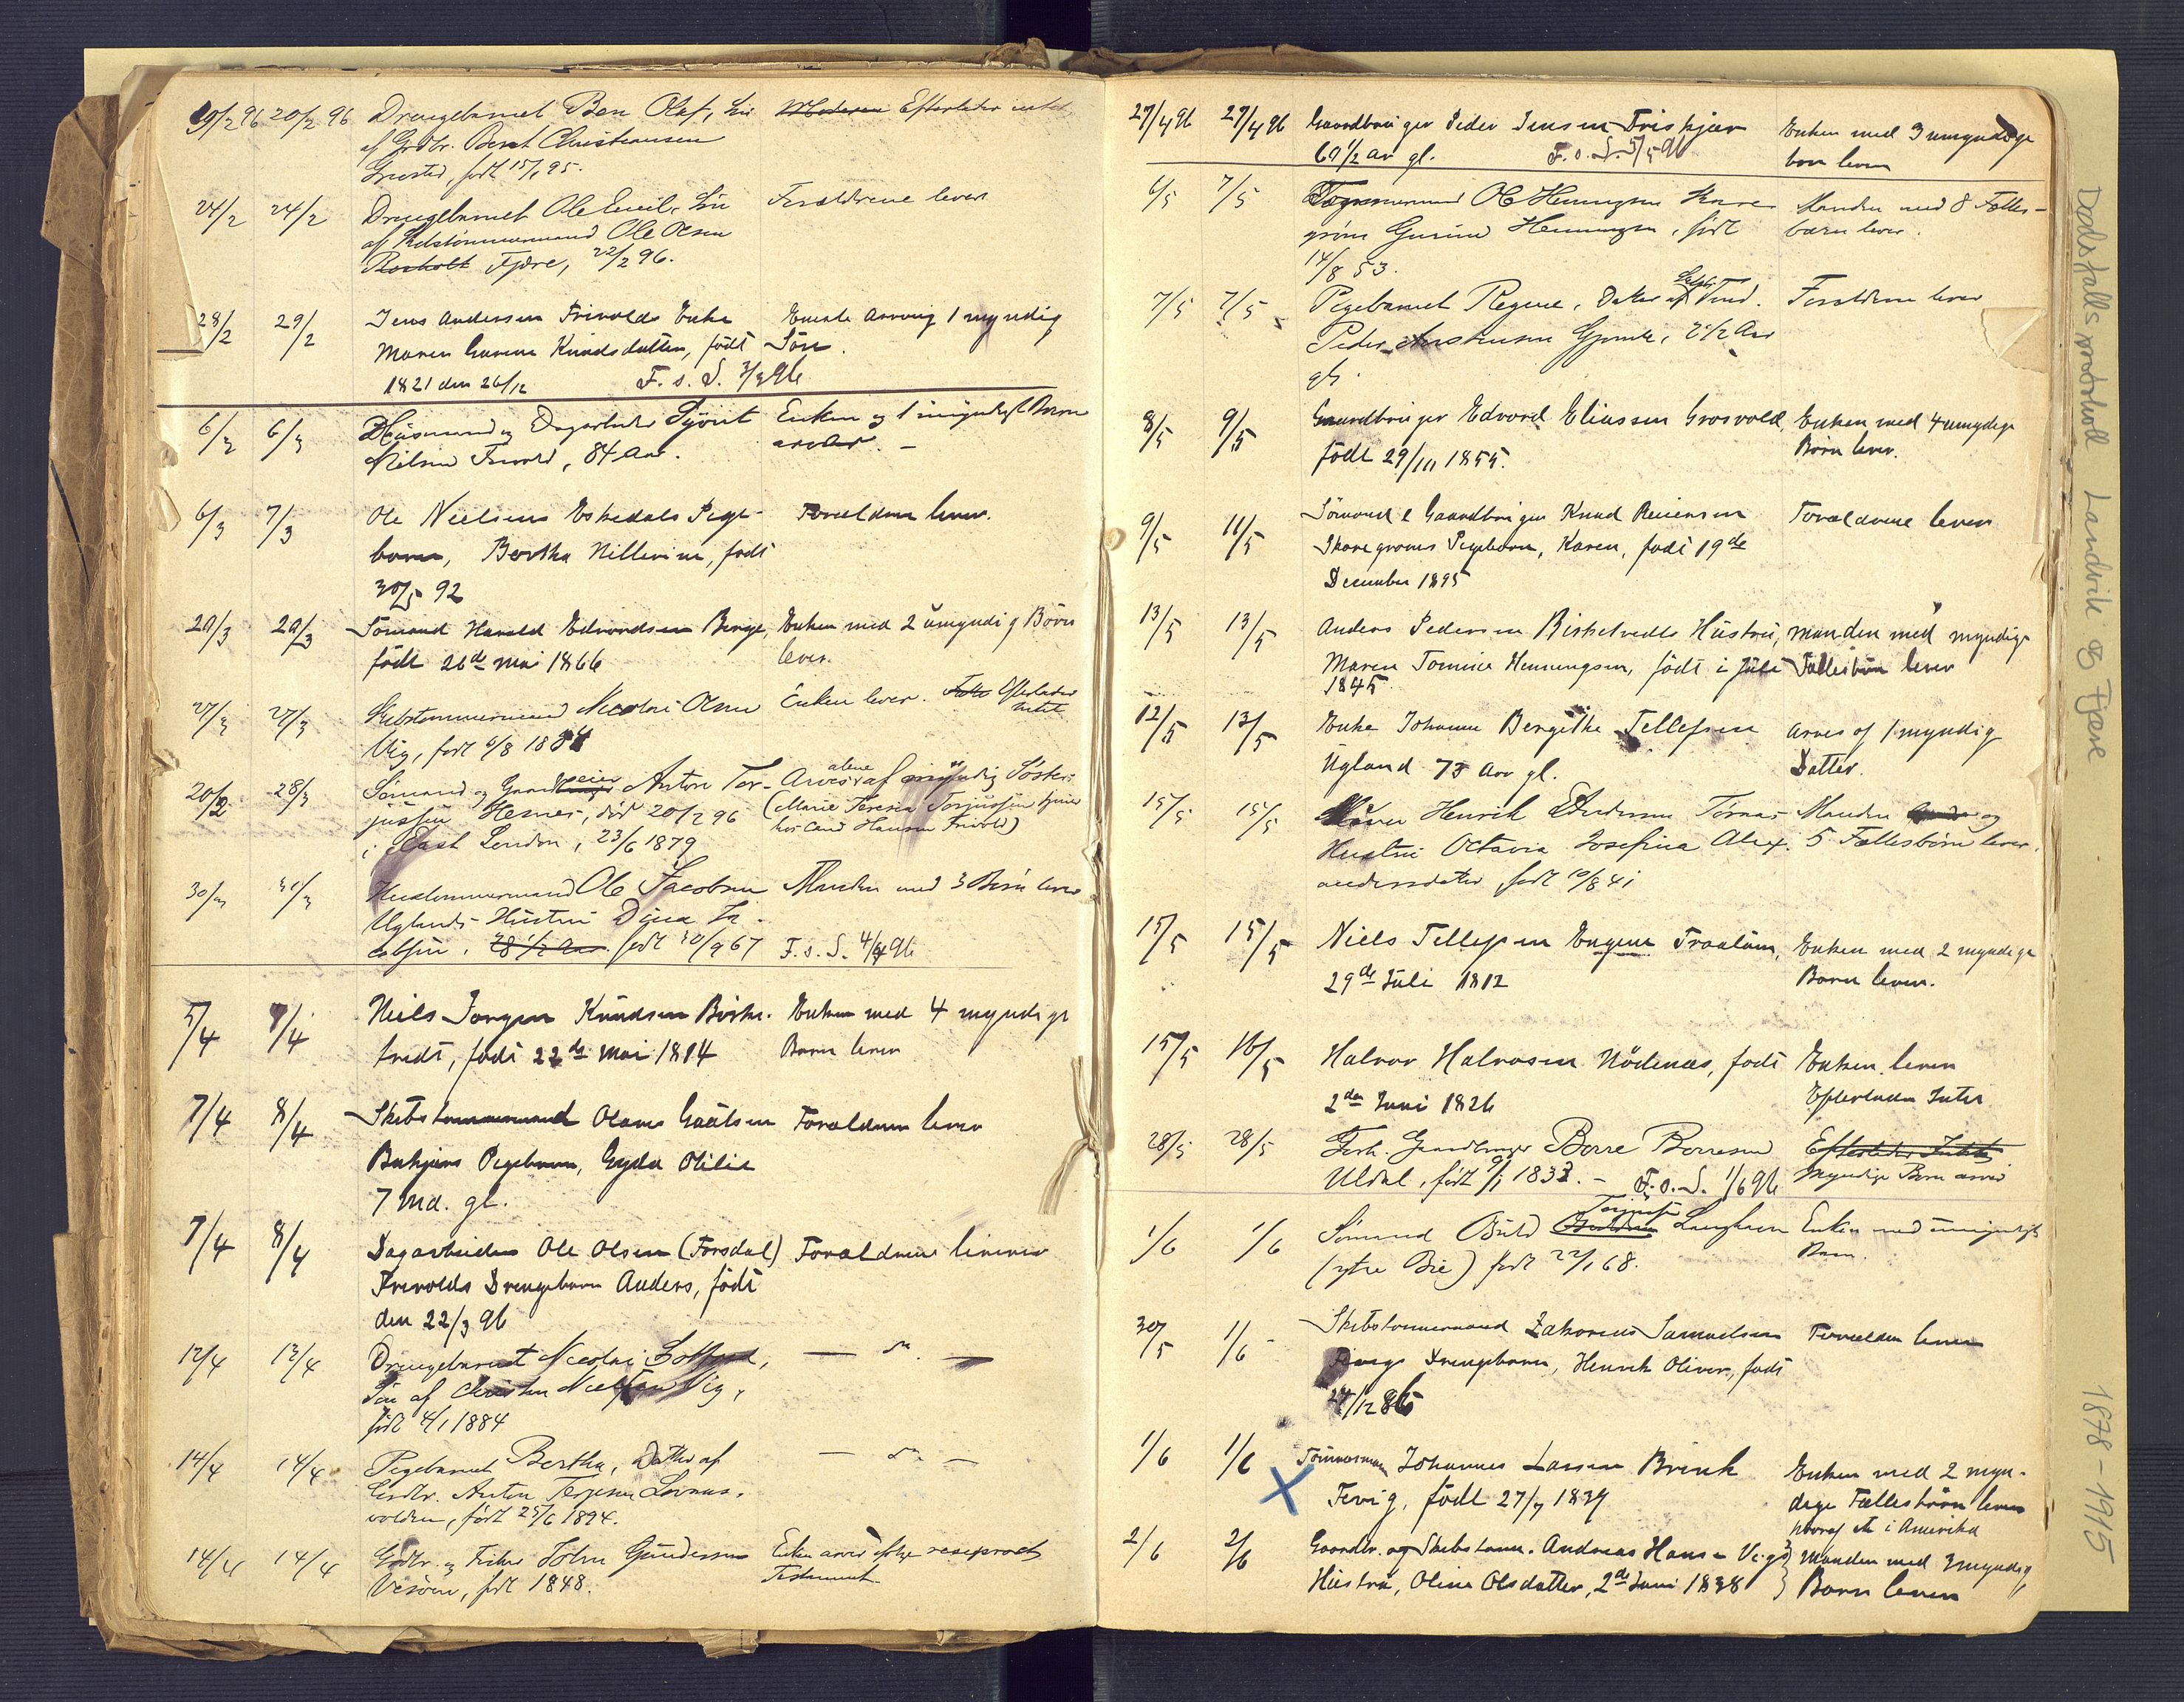 19/2 96 20/2 96 Drengebarnet Bern Olaf, Søn Moderen Efterlader intet
af Grdbr. Bernt Christensen
født 15/1 95.
24/2 24/2 Drengebarnet Ole Emil, Søn Forældrene lever
af Skibstømmermand Ole Olsen
Rosholt Fjære, 22/2 96.
28/2 29/2 Jens Andersen Frivolds Enke Eneste Arving 1 myndig
Maren Gurine Knudsdatter, født Søn.
1821 den 26/12 F. s. S. 3/3 96
6/3 6/3 Husmand og Dagarbeider Enken og 1 umyndigt Barn
Nilsen Frivold, 84 Aar. arver. –
6/3 7/3 Ole Nielsens Eskedals Pige- Forældrene lever.
barn, Bertha Nillevine, født
30/5 92
20/3 20/3 Sømand Harald Edvardsen Berge, Enken med 2 umyndig Børn
født 26de Mai 1866 lever.
27/3 27/3 Skibstømmermand Nicolai Olsen Enken lever. Efterlader
Vig, født 6/8 18 intet
20/2 28/3 Sømand og Gaardeier Anton Ter- Arves alene af myndig Søster
jussen Hesnes, død 20/2 96 (Marie Teresia Torjussen tjener
i East London, 23/6 1879 hos Hansen Frivold)
30/3 30/3 Hustømmermand Ole Jacobsen Manden med 3 Børn lever
Uglands Hustru Dina Ja-
cobsen, 28 1/2 Aar født 30/9 67 F. s. S. 4/4 96
5/4 7/4 Niels Jørgen Knudsen Birke- Enken med 4 myndige
tredt, født 22de Mai 1814 Børn lever
7/4 8/4 Skibstømmermand Olaus Forældrene lever
Pigebarn, Gyda Otilie
7 Md. gl.
7/4 8/4 Dagarbeider Ole Olsen (Forsdal) Forældrene lever
Frivolds Drengebarn Anders, født
den 22/3 96
12/4 13/4 Drengebarnet Nicolai — do. —
Søn af Christen Nielsen Vig,
født 4/1 1884
14/4 14/4 Pigebarnet Bertha, Datter af — do. —
Grdbr. Anton Terjesen
volden, født 25/6 1894.
14/4 14/4 Grdbr. og Fisker John Gundersen Enken arver ifølge reciproct
Vesøen, født 1848. Testament.
27/4 96 27/4 96 Gaardbruger Peder Jensen Friskjær Enken med 3 umyndige
69 1/2 Aar gl. F. o. S. 5/5 96 børn lever
6/5 7/5 Tømmermand Ole Henningsen Skare- Manden med 8 Fælles-
grøns Gurine Henningsen, født børn lever.
14/8 53.
7/5 7/5 Pigebarnet Regine, Datter af Forældrene lever
Peder 2 1/2 Aar
gl.
8/5 9/5 Gaardbruger Edvard Eliassen Grosvold, Enken med 4 umyndige
født 29/10 1855. Børn lever.
9/5 11/5 Sømand & Gaardbruger Knud Reiersen Forældrene lever
Skaregrøns Pigebarn, Karen, født 19de
December 1895
13/5 13/5 Anders Pedersen Birketvedts Hustru, Manden med myndige
Maren Tomine Henningsen, født i Juli Fællesbørn lever
1845
12/5 13/5 Enke Johanne Bergithe Tellefsen Arves af 1 myndig
Ugland 73 Aar gl. Datter.
15/5 15/5 Henrik Andersen Tørnæs Manden og
Hustru Octavia Josefina Alex- 5 Fællesbørn lever.
andersdatter, født 10/8 41
15/5 15/5 Niels Tellefsen Engene Fraalum, Enken med 2 myndige
29de Juli 1812 Børn lever.
15/5 16/5 Halvor Halvorsen Nødenæs, født Enken lever
2den Juni 1826 Efterlader Intet
28/5 28/5 Forh. Gaardbruger Børre Børresen Efterlader Intet
Uldal, født 9/1 1833. – F. o. S. 1/6 96 Myndige Børn arver
1/6 1/6 Sømand Torjusen Enken med umyndigt
(ytre Bie) født 22/1 68. Barn.
30/5 1/6 Skibstømmermand Zakarias Samuelsen Forældrene lever
Drengebarn, Henrik Oliver, født
24/12 86
1/6 1/6 Tømmermand Johannes Larsen Brink Enken med 2 myn-
Fevig, født 27/7 1839 dige Fællesbørn lever
hvoraf et i Amerika
2/6 2/6 Gaardbr. og Skibstømr. Andreas Hansen Vigs Manden med 3 myndig
Hustru, Oline Olsdatter, 2de Juni 1838 Børn lever
Dødsfallsprotokoll Landvik og Fjære
1878 - 1915